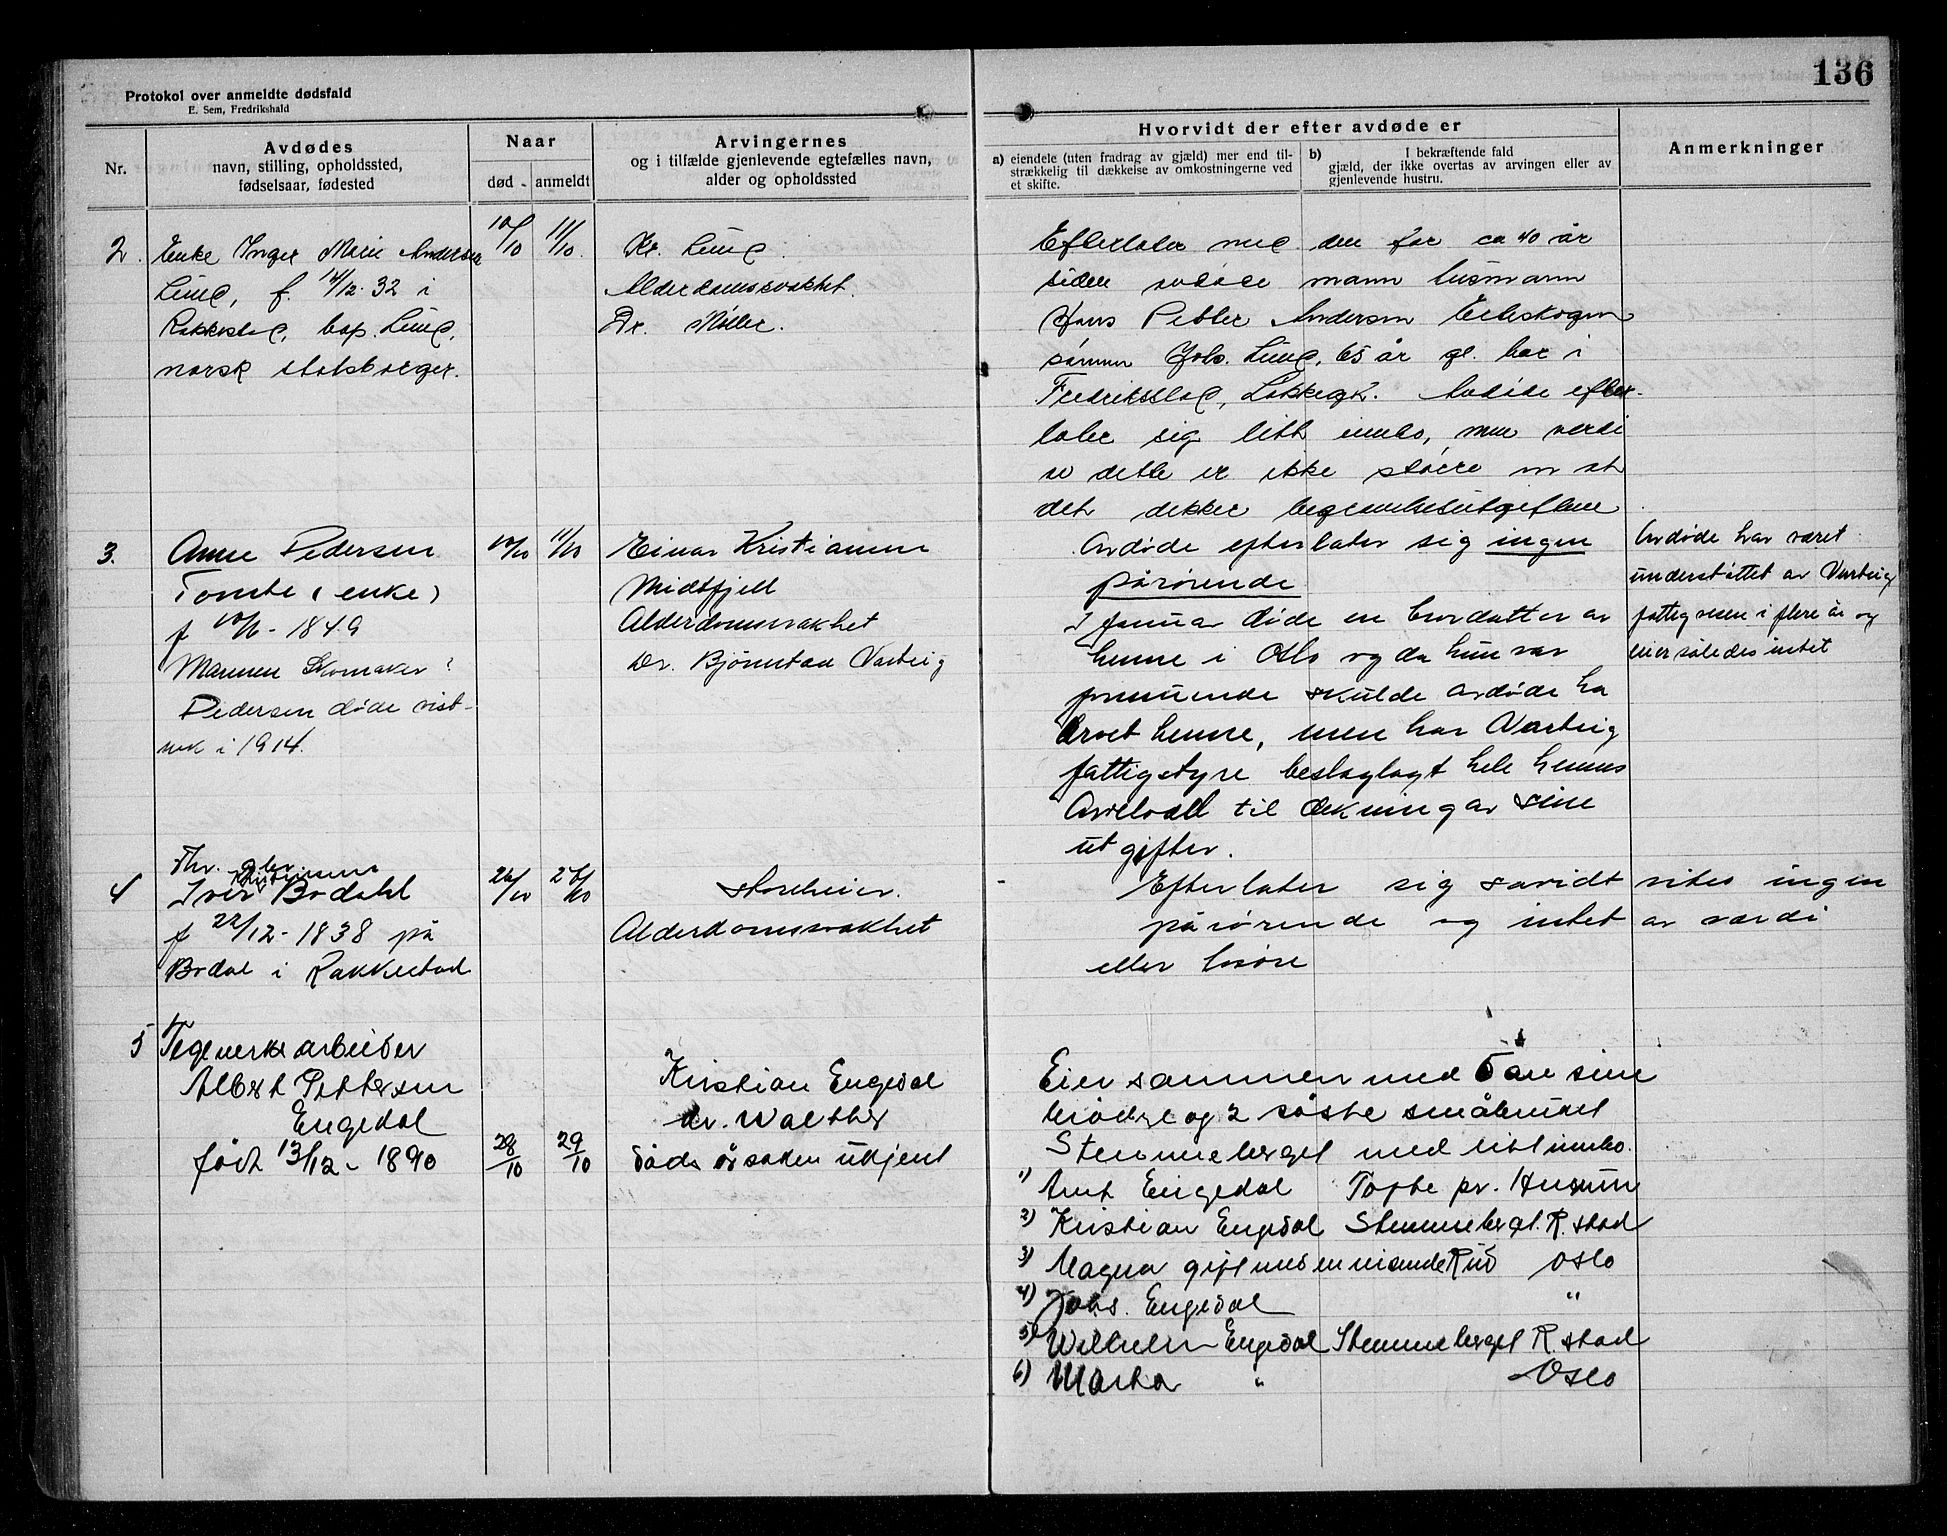 136
Protokol over anmeldte dødsfald
E. Sem, Fredrikshald
Nr.
Avdødes
navn, stilling, opholdssted,
fødselsaar, fødested
Naar
død
anmeldt
Arvingernes
og i tilfælde gjenlevende egtefælles navn,
alder og opholdssted
Hvorvidt der efter avdøde er
a) eiendele (uten fradrag av gjæld) mer end til-
strækkelig til dækkelse av omkostningerne ved
et skifte.
b) I bekræftende fald
gjæld, der ikke overtas av arvingen eller av
gjenlevende hustru.
Anmerkninger
2.
Enke Inger Marie Andersen
Lund, f. 14/12.32 i
Rakkestad, bop. Lund,
norsk statsborger.
10/10
11/10.
Kr. Lund.
Alderdomssvakhet.
Dr. Møller.
Efterlater med den for ca 40 år
siden avdøde mann husmann
Hans Petter Andersen
sønnen Johs. Lund, 65 år gl. bor i
Fredrikstad, . Avdøde efter-
later sig litt innbo, men verdi
av dette er ikke større enn at
det dekker begravelsesutgiftene
3.
Anne Pedersen
Tomte (enke)
f 10/6 - 1849
Mannen Skomaker
Pedersen døde vist-
nok i 1914.
10/10
11/10
Einar Kristiansen
Midtfjell
Alderdomssvakhet
Dr. Bjørnstad Varteig
Avdøde efterlater sig ingen
pårørende
I januar døde en brordatter av
henne i Oslo og da hun var
formuende skulde avdøde ha
arvet henne, men har Varteig
fattigstyre beslaglagt hele hennes
Arvelodd til dekning av sine
utgifter.
Avdøde har været
understøttet av Varteig
fattigvesen i flere år og
eier således intet
4
Fhv.
Iver Kristiansen Bodahl
f 22/12 - 1838 på
Bodal i Rakkestad
26/10
Storeheier.
Alderdomssvakhet
Efterlater sig savidt vites ingen
pårørende og intet av værdi
eller løsøre
5
Teglverksarbeider
Albert Pettersen
Engedal
født 13/12 - 1890
28/10
29/10
Kristian Engedal
dr. Walther
dødsårsaken ukjent
Eier sammen med sine
brødre og 2 søstre småbruket
Stemmeberget med litt innbo.
1) Arnt Engedal Tofte pr. Hurum
2) Kristian Engedal Stemmeberget R.stad
3) Magna gift med en Rud Oslo
4) Johs. Engedal "
5) Wilhelm Engedal Stemmeberget R.stad
6) Marta " Oslo